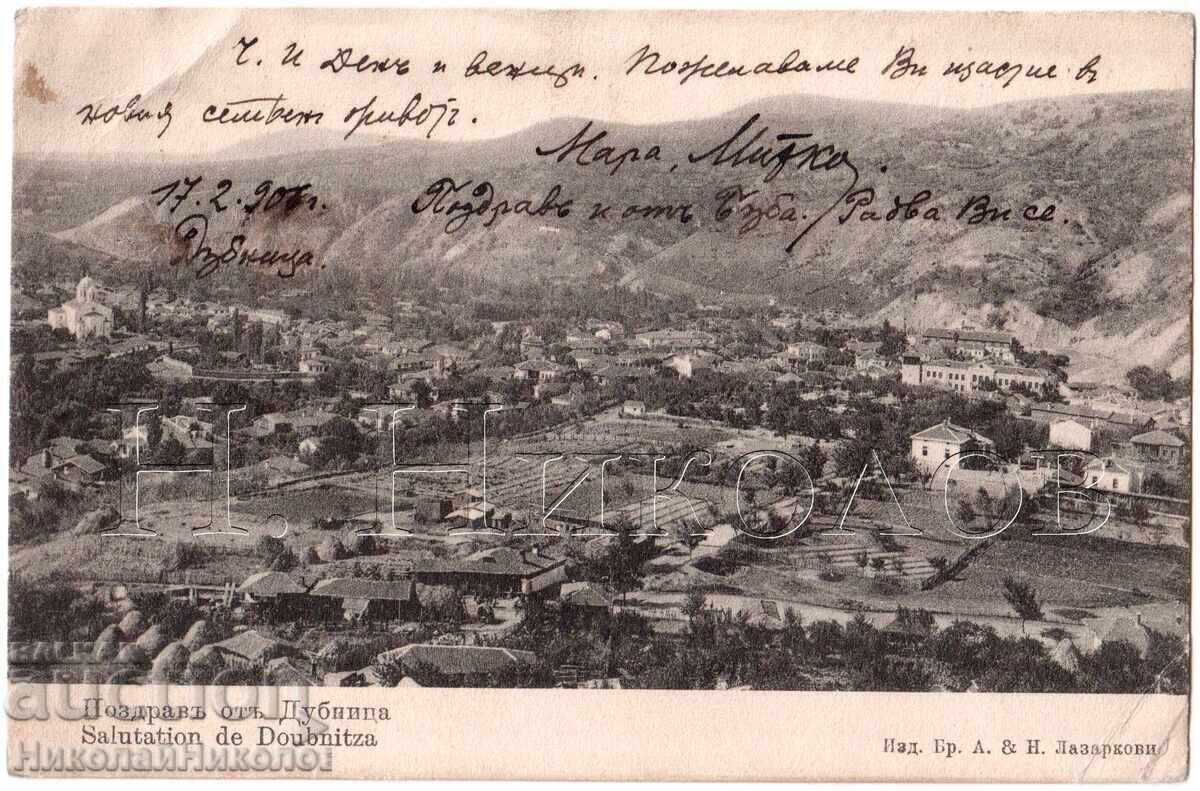 Ч. И Денъ и венци. Пожелаваме Ви щастие в
новия семѣен живот.
Мара, Митко.
17.2.906г. Поздравъ и отъ Буба. Радва Ви се.
Дубница.
Н. Николов
BALKAN
auction
Поздравъ отъ Дубница
Salutation de Doubnitza
Изд. Бр. А. & Н. Лазаркови
НиколайНиколов